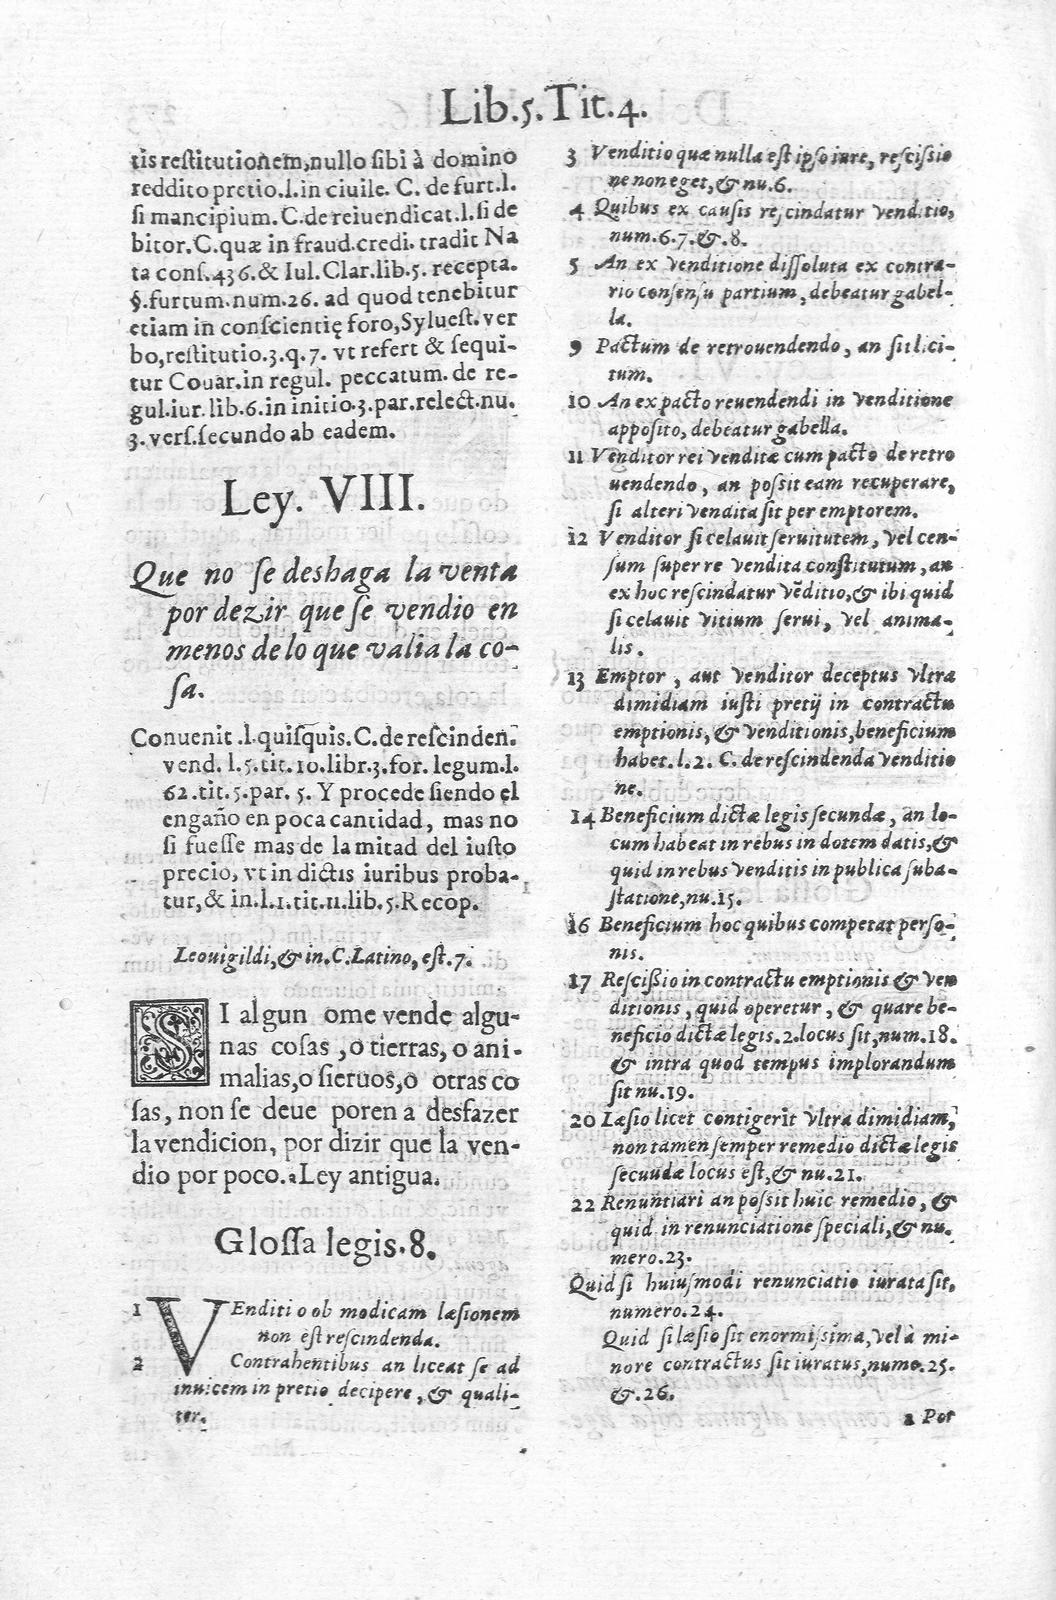 Lib.5.Tit.4.
tis restitutionem, nullo sibi à domino
reddito pretio.l.in ciuile. C. de furt.l.
si mancipium. C. de reiuendicat.l.si de
bitor. C. quæ in fraud.credi. tradit Na
ta cons.436.& Iul. Clar.lib.5. recepta.
§.furtum.num.26. ad quod tenebitur
etiam in conscientię foro, Syluest. ver
bo, restitutio.3.q.7. vt refert & sequi-
tur Couar.in regul. peccatum. de re-
gul.iur.lib.6.in initio.3.par.relect.nu.
3.vers.secundo ab eadem.
Ley. VIII.
Que no se deshaga la venta
por dezir que se vendio en
menos de lo que valia la co-
sa.
Conuenit .l.quisquis.C. de rescinden.
vend. l.5.tit.10.libr.3.for. legum.l.
62.tit.5.par. 5. Y procede siendo el
engaño en poca cantidad, mas no
si fuesse mas de la mitad del iusto
precio, vt in dictis iuribus proba-
tur, & in.l.1.tit.11.lib.5.Recop.
Leouigildi, & in.C.Latino, est.7.
SI algun ome vende algu-
nas cosas, o tierras, o ani-
malias, o sieruos, o otras co
sas, non se deue poren a desfazer
la vendicion, por dizir que la ven-
dio por poco.a Ley antigua.
Glossa legis.8.
1 VEnditio ob modicam læsionem
non est rescindenda.
2 Contrahentibus an liceat se ad
inuicem in pretio decipere, & quali-
ter.
3 Venditio quæ nulla est ipso iure, rescissio
ne non eget, & nu.6.
4 Quibus ex causis rescindatur venditio,
num.6.7.&.8.
5 An ex venditione dissoluta ex contra-
rio consensu partium, debeatur gabel-
la.
9 Pactum de retrouendendo, an sit lici-
tum.
10 An ex pacto reuendendi in venditione
apposito, debeatur gabella.
11 Venditor rei venditæ cum pacto de retro
uendendo, an possit eam recuperare,
si alteri vendita sit per emptorem.
12 Venditor si celauit seruitutem, vel cen-
sum super re vendita constitutum, an
ex hoc rescindatur vēditio, & ibi quid
si celauit vitium serui, vel anima-
lis.
13 Emptor, aut venditor deceptus vltra
dimidiam iusti pretij in contractu
emptionis, & venditionis, beneficium
habet. l. 2. C. de rescindenda venditio
ne.
14 Beneficium dictæ legis secundæ, an lo-
cum habeat in rebus in dotem datis, &
quid in rebus venditis in publica suba-
statione, nu.15.
16 Beneficium hoc quibus competat perso-
nis.
17 Rescissio in contractu emptionis & ven
ditionis, quid operetur, & quare be-
neficio dictæ legis.2.locus sit, num.18.
& intra quod tempus implorandum
sit nu.19.
20 Læsio licet contigerit vltra dimidiam,
non tamen semper remedio dictæ legis
secuudæ locus est, & nu.21.
22 Renuntiari an possit huic remedio, &
quid in renunciatione speciali, & nu-
mero.23.
Quid si huiusmodi renunciatio iurata sit,
numero.24.
Quid si læsio sit enormissima, vel à mi-
nore contractus sit iuratus, nume.25.
&.26.
a Por